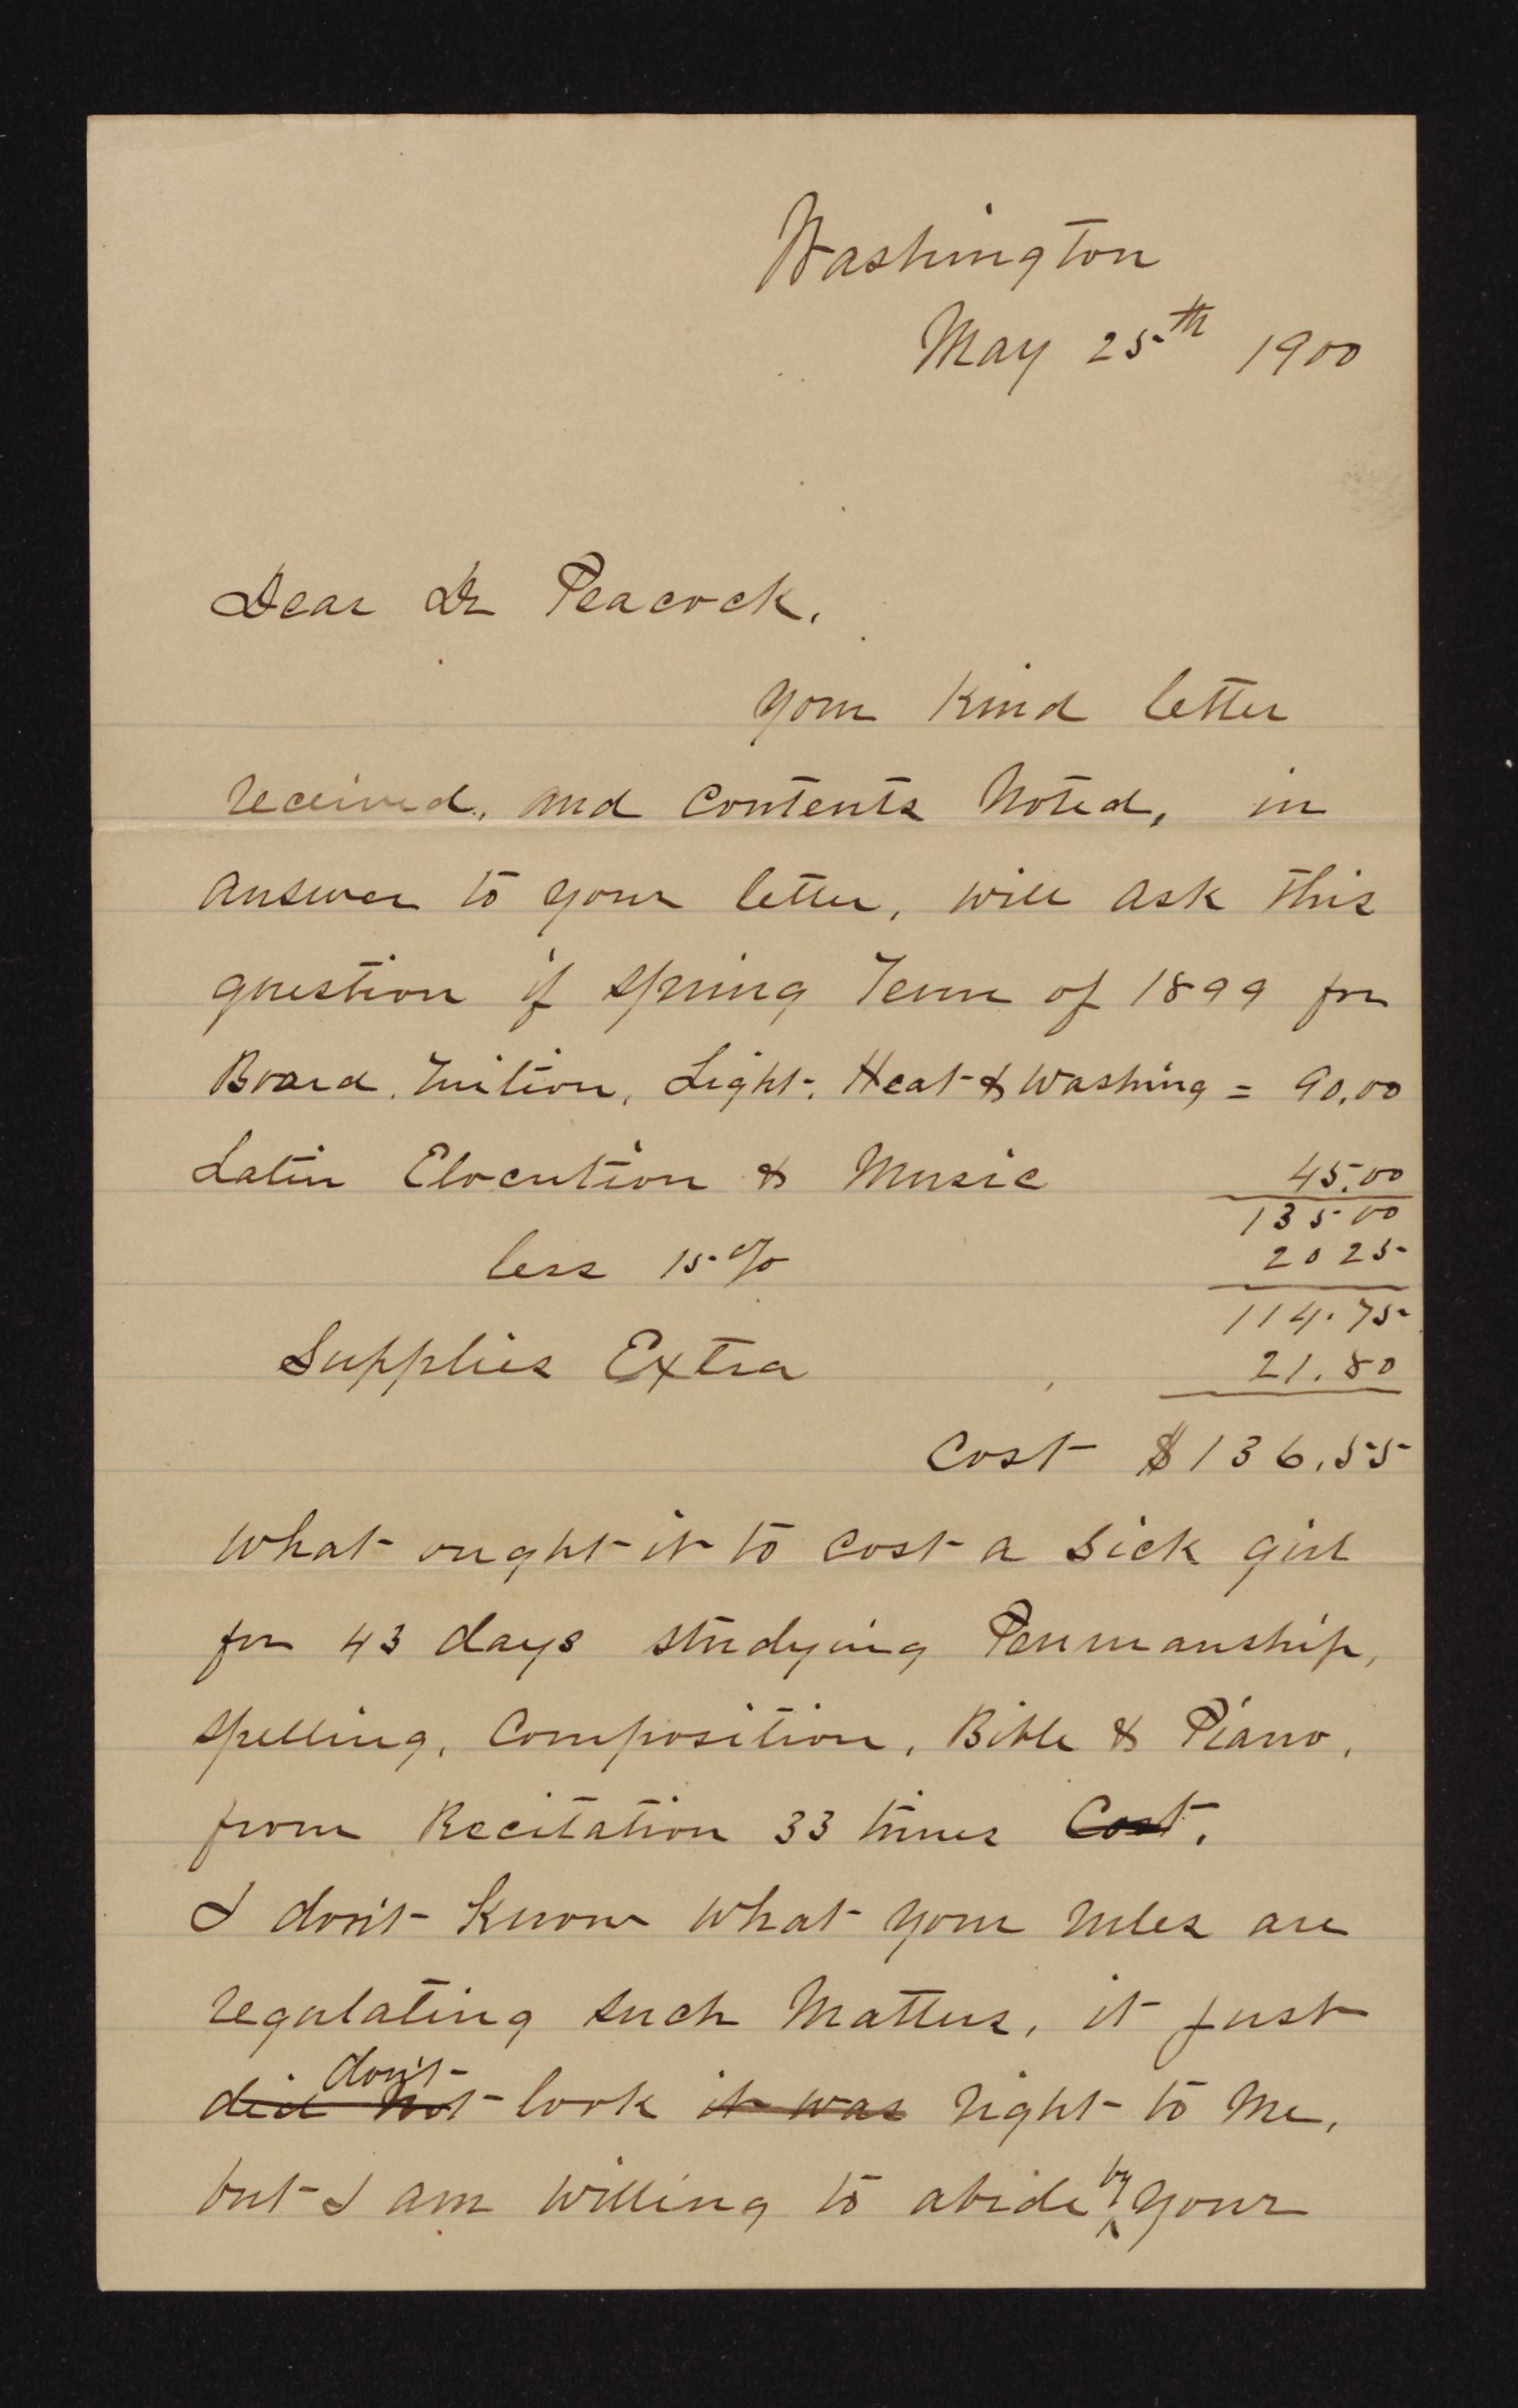 Washington
May 25th 1900
Dear Dr Peacock,
Your Kind letter
received, and Contents Noted, in
answer to your letter, will ask this
question if Spring Term of 1899 for
Board, Tuition, Light, Heat & Washing = 90.00
Latin Elocution & Music 45.00
135 00
less 15% 20 25
114.75
Supplies Extra 21.80
Cost $136.55
What ought it to cost a sick girl
for 43 days studying Penmanship,
Spelling, Composition, Bible & Piano,
from Recitation 33 times ~~Cost~~.
I don't Know what your rules are
regulating such Matters, it just
~~did not~~ don't look ~~it was~~ right to Me,
but I am willing to abide by your